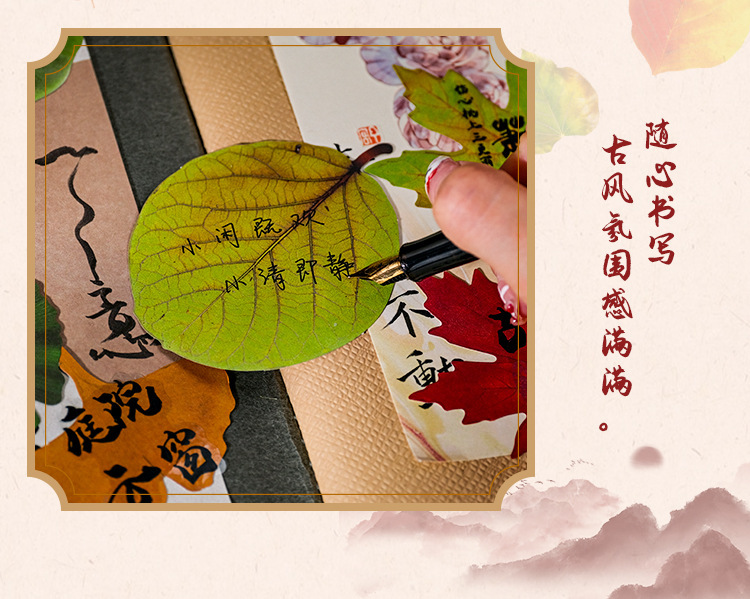 随心书写
古风氛围感满满。
小闲既欢，
心清即静
不
動
庭院
窗